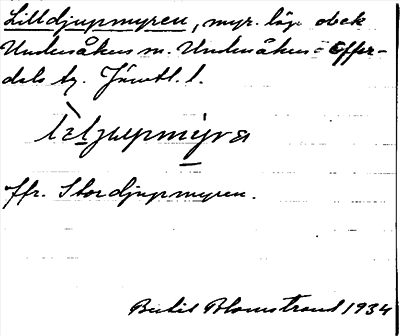 Lilldjupmyren, myr. läge obek
Undersåkers sn. Undersåkers-Offer-
dals tg. Jämtl. l.
lìl̀jupmỳra
Jfr. Stordjupmyren.
Bertil Blomstrand 1934